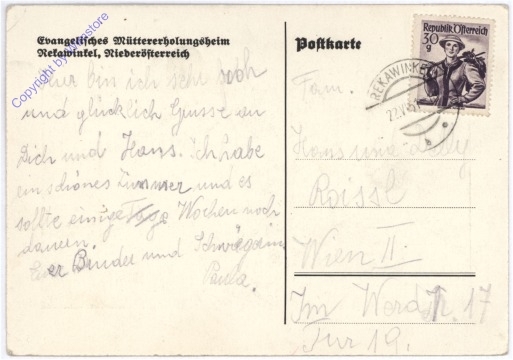 Copyright by wnstore
Evangelisches Müttererholungsheim
Rekawinkel, Niederösterreich
Hier bin ich sehr
und glücklich Grüsse an
Dich und Hans. Ich habe
ein schönes Zimmer und es
sollte einige Tage Wochen noch
dauern.
und Schwägerin
Paula.
Postkarte
Republik Österreich
30
g
REKAWINKEL
Fam.
Hans und
Roissl
Wien II.
Im Werd 17
Tür 19.